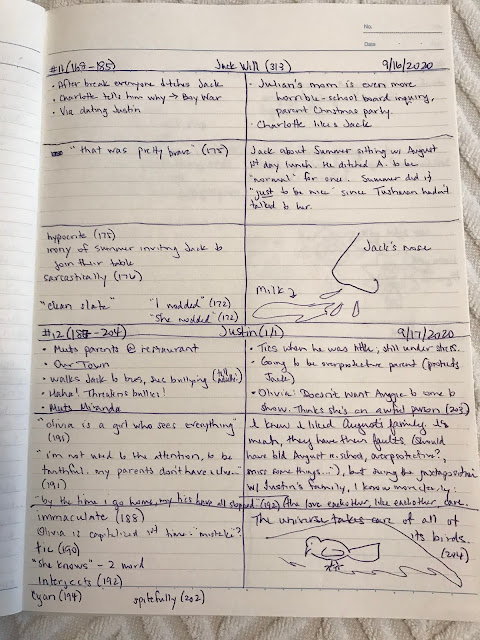 No.
Date
#11 (168-185) Jack Will (3/3) 9/16/2020
• After break everyone ditches Jack
• Charlotte tells him why → Boy War
• Via dating Justin
• Julian's mom is even more
horrible - school board inquiry,
parent Christmas party.
• Charlotte likes Jack
"that was pretty brave" (175)
Jack about Summer sitting w/ August
1st day lunch. He ditched A. to be
"normal" for one. Summer did it
"just to be nice" since Tushman hadn't
talked to her.
hypocrite (175)
irony of Summer inviting Jack to
join their table
sarcastically (176)
"clean slate" "I nodded" (172)
"She nodded" (172)
Jack's nose
Milk
#12 (187-204) Justin (1/1) 9/17/2020
• Meets parents @ restaurant
• Our Town
• walks Jack to bus, sees bullying
• Haha! Threatens bullies!
• Meets Miranda
• Tics when he was little, still under stress.
• Going to be overprotective parent (protects
Jack)
• Olivia! Doesn't want Auggie to come to
show. Thinks she's an awful person (203)
"olivia is a girl who sees everything"
(191)
"i'm not used to the attention, to be
truthful. my parents don't have a clue..."
(191)
"by the time i go home, my tics have all stopped" (192)
I knew I liked August's family. I
mean, they have their faults (should
have told August re: school, overprotective?,
miss some things...), but seeing the juxtaposition
w/ Justin's family, I know more clearly:
love each other, like each other, care.
immaculate (188)
Olivia is capitalized 1st time - "mistake"?
tic (190)
"she knows" - 2 word
Interjects (192)
Ryan (194) spitefully (202)
The universe takes care of all of
its birds.
(204)